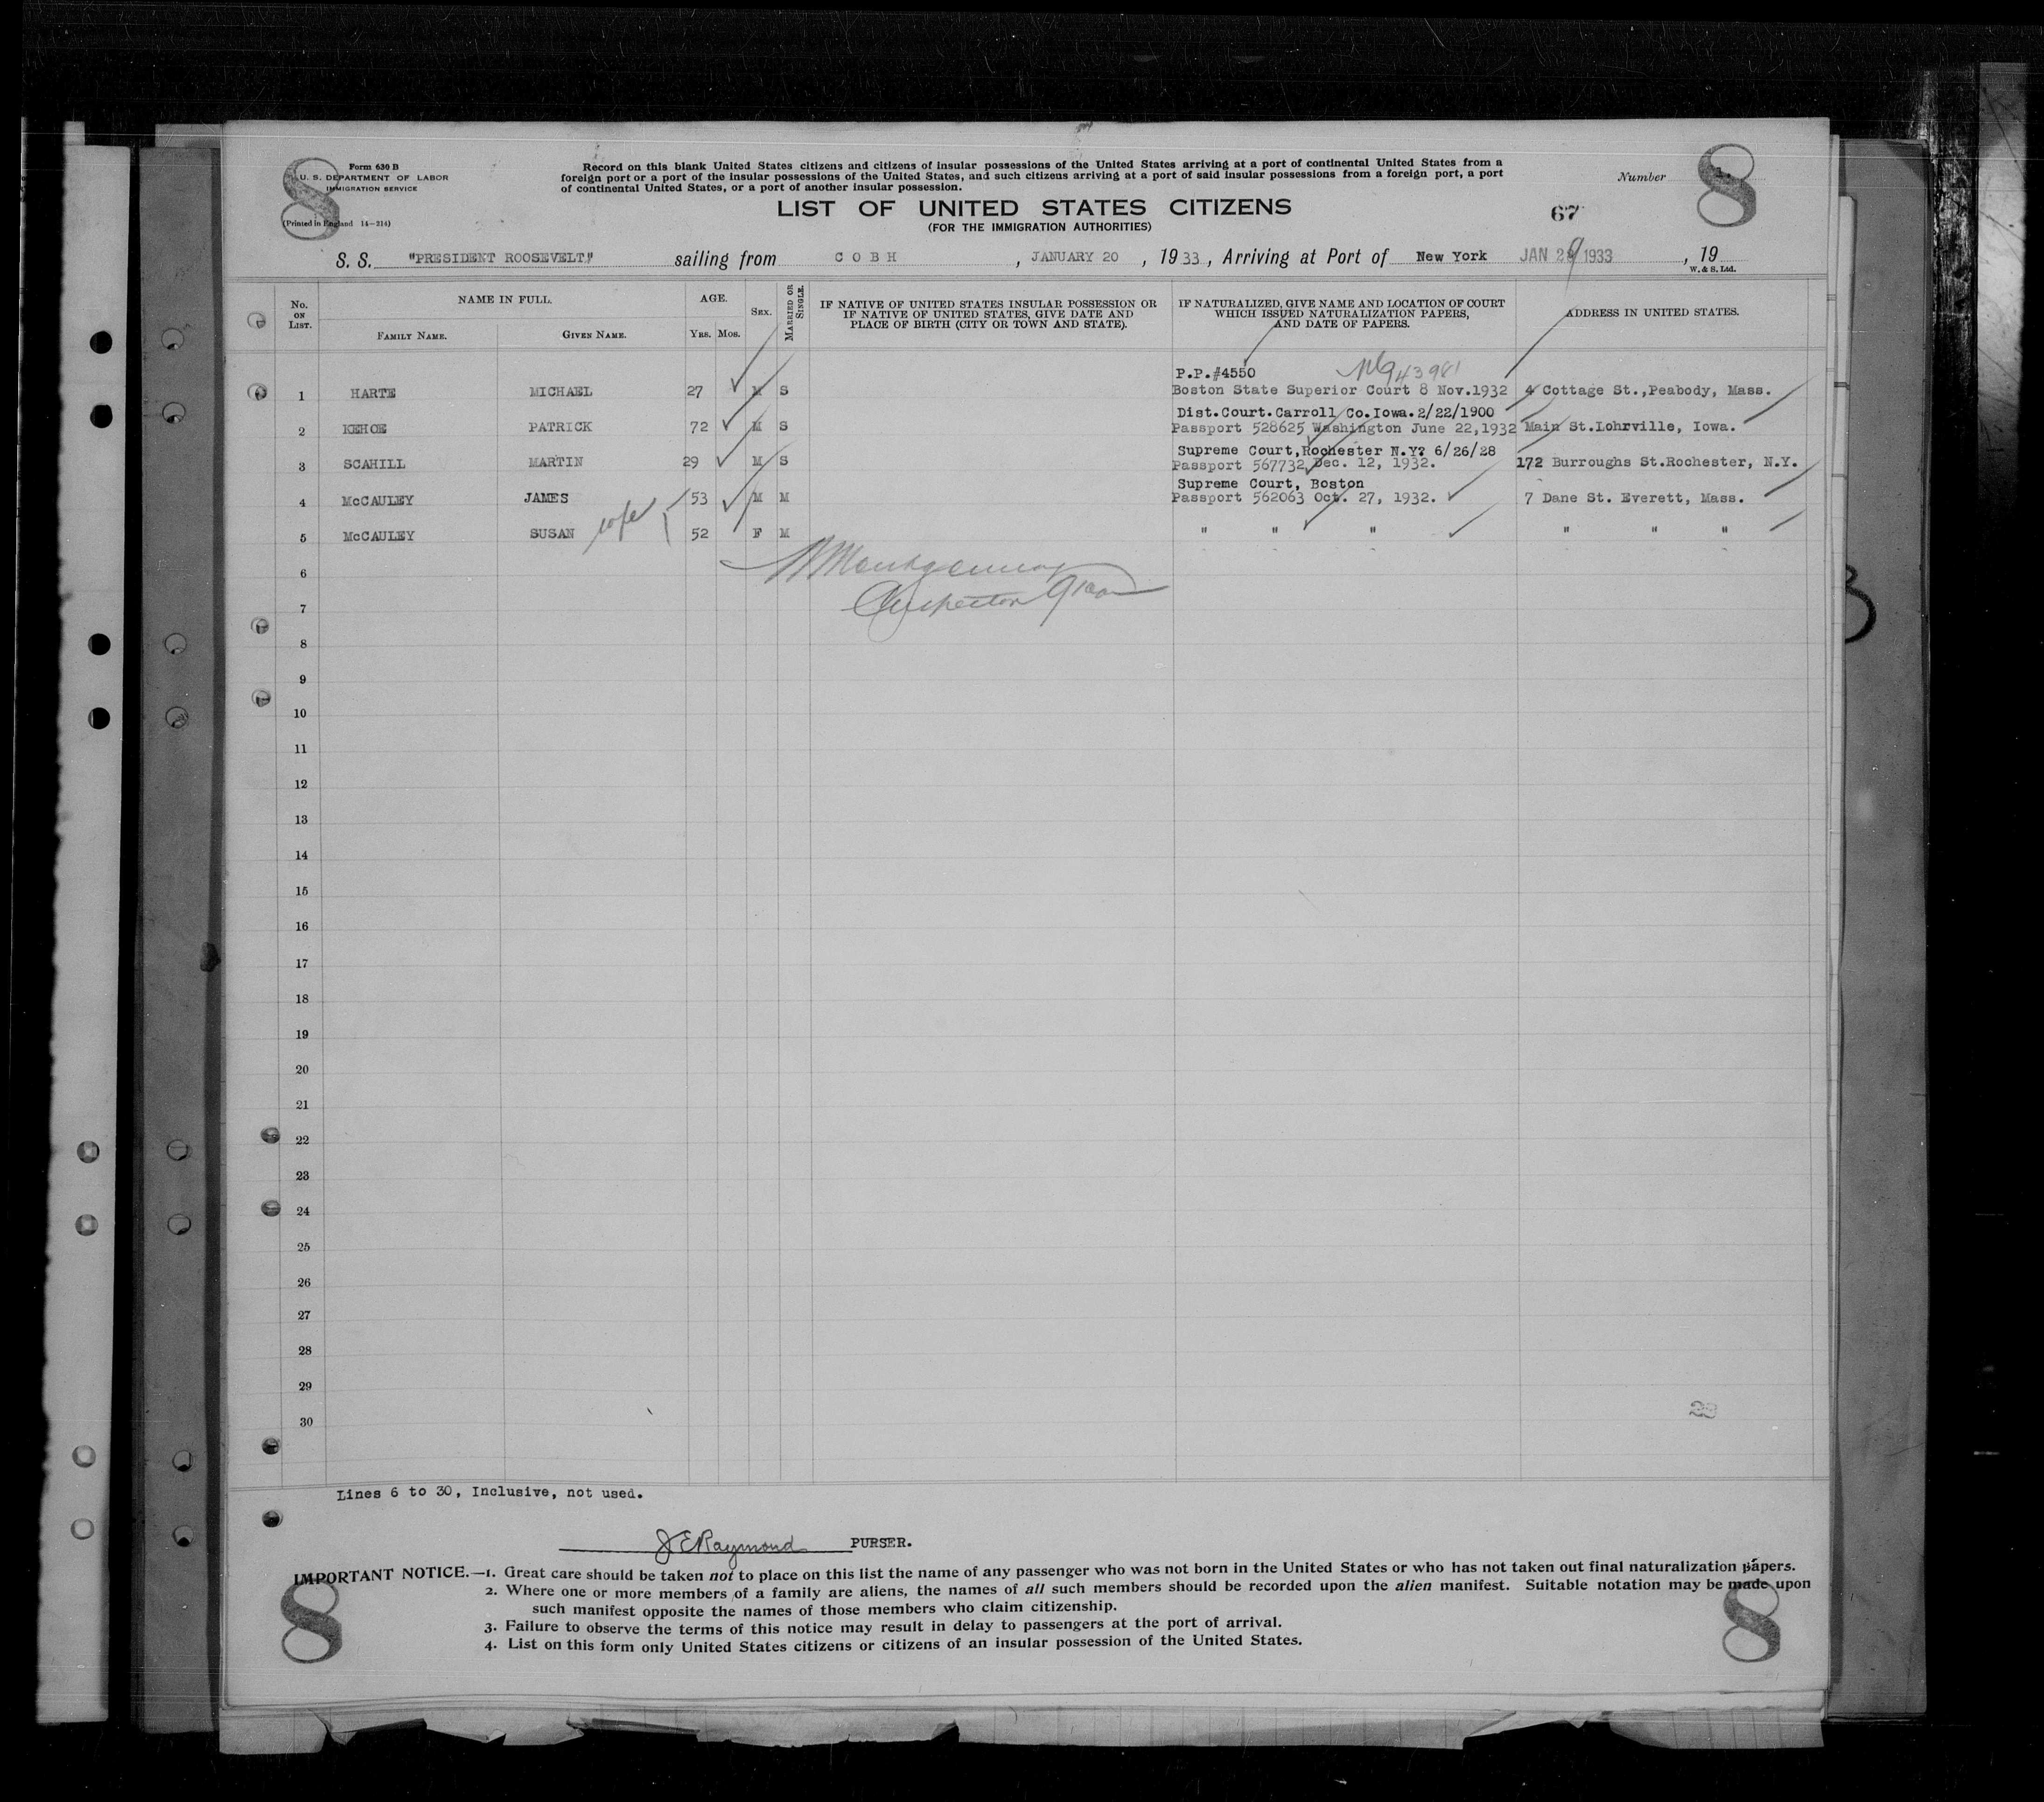 8
Form 630 B
U. S. DEPARTMENT OF LABOR
IMMIGRATION SERVICE
(Printed in England 14—214)
Record on this blank United States citizens and citizens of insular possessions of the United States arriving at a port of continental United States from a
foreign port or a port of the insular possessions of the United States, and such citizens arriving at a port of said insular possessions from a foreign port, a port
of continental United States, or a port of another insular possession.
Number 8
LIST OF UNITED STATES CITIZENS
67
(FOR THE IMMIGRATION AUTHORITIES)
S. S. "PRESIDENT ROOSEVELT" sailing from COBH , JANUARY 20 , 19 33 , Arriving at Port of New York JAN 29 1933 , 19
W. & S. Ltd.
No. ON LIST.
NAME IN FULL.
FAMILY NAME. GIVEN NAME.
AGE.
YRS. MOS.
SEX.
MARRIED OR SINGLE.
IF NATIVE OF UNITED STATES INSULAR POSSESSION OR
IF NATIVE OF UNITED STATES, GIVE DATE AND
PLACE OF BIRTH (CITY OR TOWN AND STATE).
IF NATURALIZED, GIVE NAME AND LOCATION OF COURT
WHICH ISSUED NATURALIZATION PAPERS,
AND DATE OF PAPERS.
ADDRESS IN UNITED STATES.
P.P.#4550
1 HARTE MICHAEL 27 M S Boston State Superior Court 8 Nov.1932 4 Cottage St.,Peabody, Mass.
Dist.Court.Carroll Co.Iowa.2/22/1900
2 KEHOE PATRICK 72 M S Passport 528625 Washington June 22,1932 Main St.Lohrville, Iowa.
Supreme Court,Rochester N.Y? 6/26/28
3 SCAHILL MARTIN 29 M S Passport 567732 Dec. 12, 1932. 172 Burroughs St.Rochester, N.Y.
Supreme Court, Boston
4 McCAULEY JAMES 53 M M Passport 562063 Oct. 27, 1932. 7 Dane St. Everett, Mass.
5 McCAULEY SUSAN wife 52 F M " " " " " "
6
Montgomery
7
Inspector
8
9
10
11
12
13
14
15
16
17
18
19
20
21
22
23
24
25
26
27
28
29
30
Lines 6 to 30, Inclusive, not used.
J E Raymond PURSER.
IMPORTANT NOTICE.—1. Great care should be taken not to place on this list the name of any passenger who was not born in the United States or who has not taken out final naturalization papers.
2. Where one or more members of a family are aliens, the names of all such members should be recorded upon the alien manifest. Suitable notation may be made upon
such manifest opposite the names of those members who claim citizenship.
3. Failure to observe the terms of this notice may result in delay to passengers at the port of arrival.
4. List on this form only United States citizens or citizens of an insular possession of the United States.
8
8